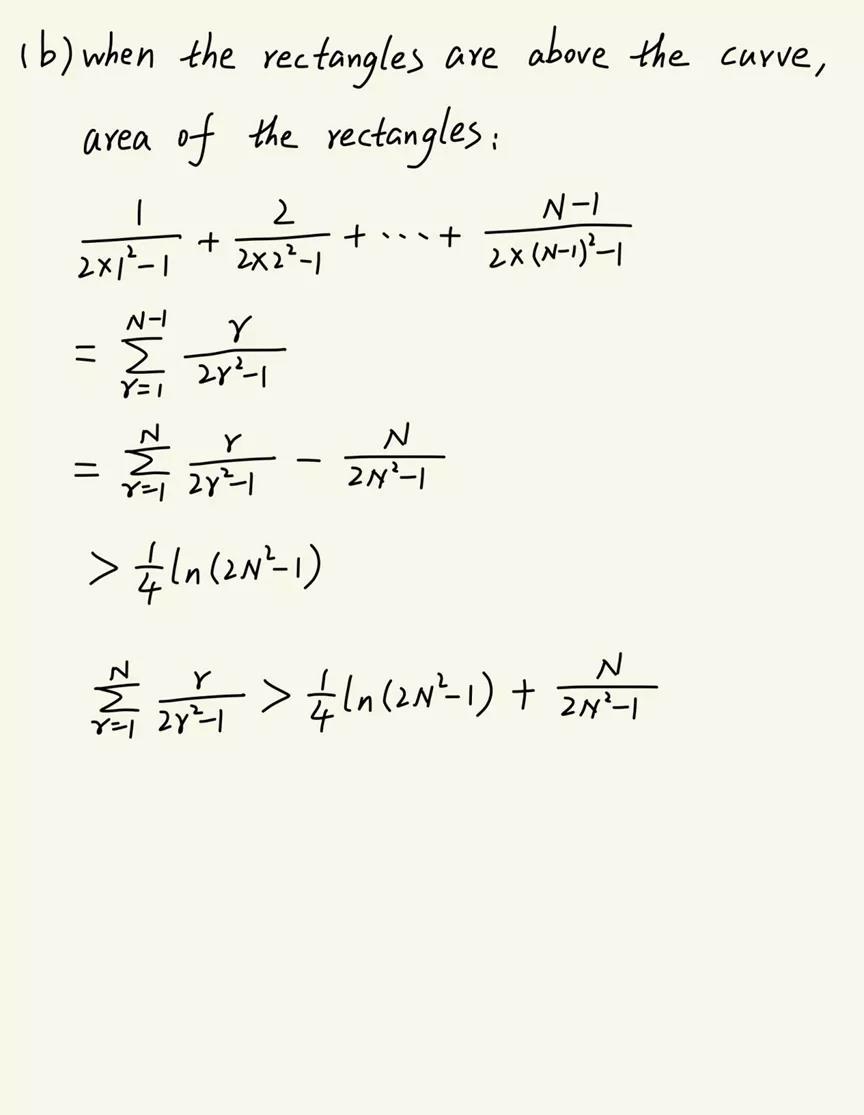 (b) when the rectangles are above the curve,
area of the rectangles:
1/(2×1²-1) + 2/(2×2²-1) + ... + (N-1)/(2×(N-1)²-1)
= ∑_{r=1}^{N-1} r/(2r²-1)
= ∑_{r=1}^{N} r/(2r²-1) - N/(2N²-1)
> 1/4 ln(2N²-1)
∑_{r=1}^{N} r/(2r²-1) > 1/4 ln(2N²-1) + N/(2N²-1)